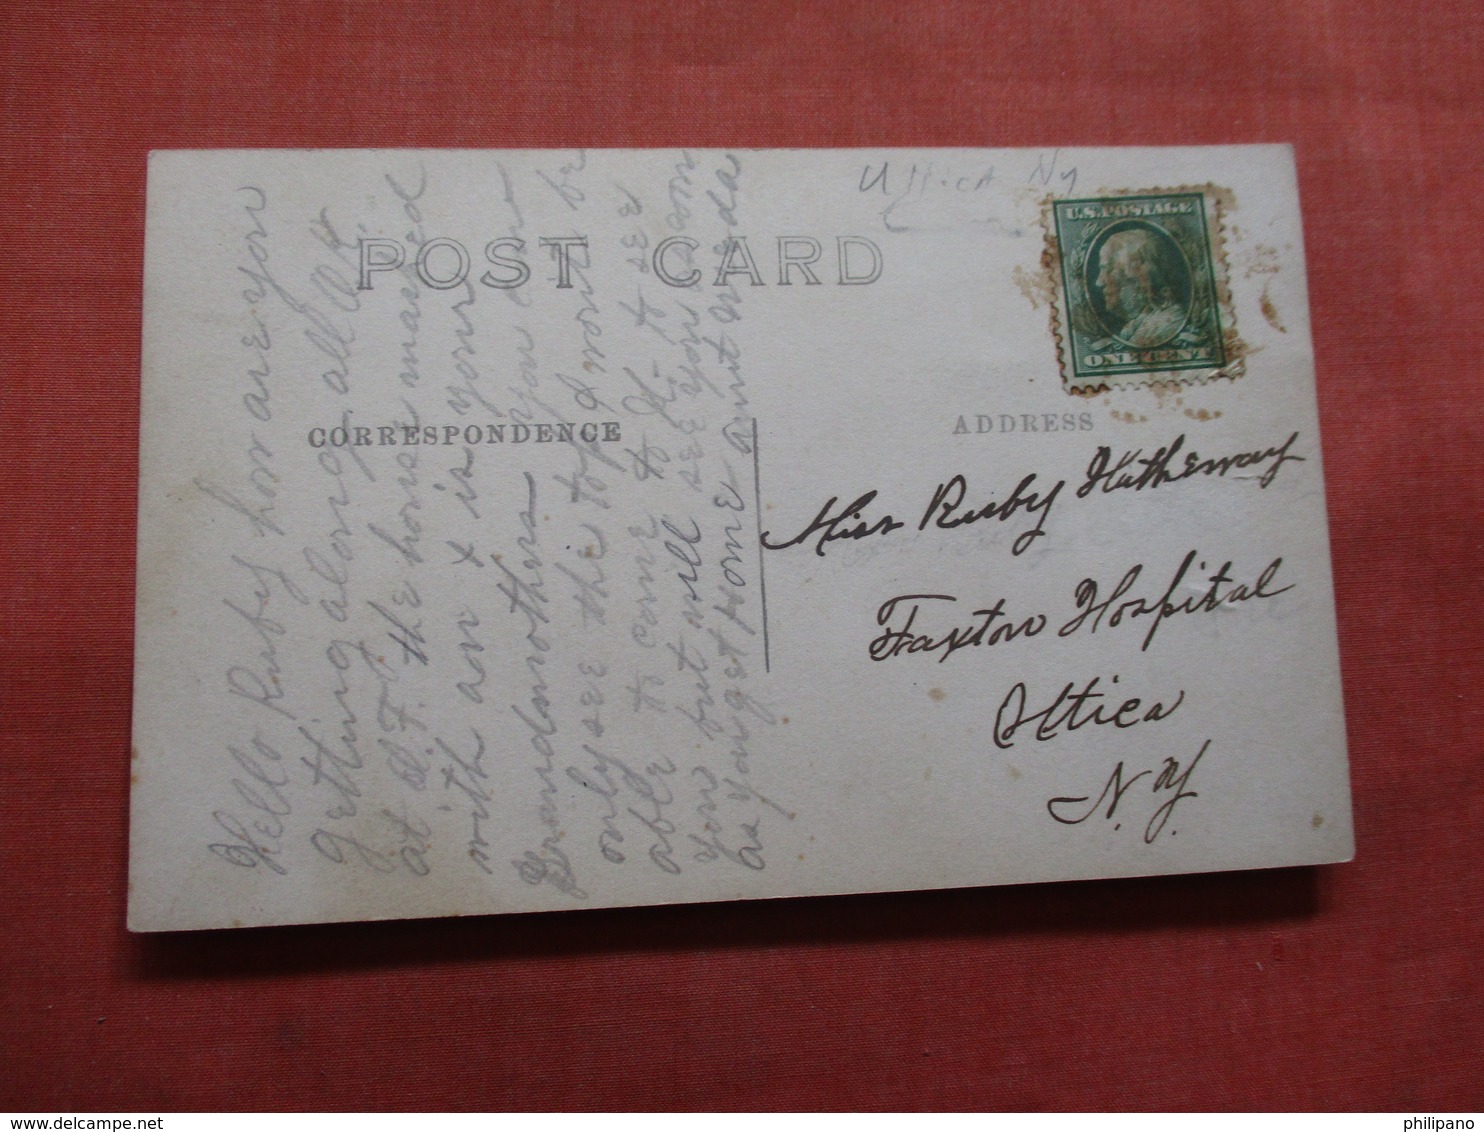 Uttica Ny
POST CARD
U.S. POSTAGE
ONE CENT
CORRESPONDENCE
ADDRESS
Hello Ruby how are you
getting along all O.K.
at D.F. the house marked
with an x is your
Grandmothers you can
only see the top I wont be
able to come to to see
you but will see you soon
as you get home aunt
Miss Ruby Hatheway
Faxton Hospital
Uttica
N.Y.
delcampe.net
philipano